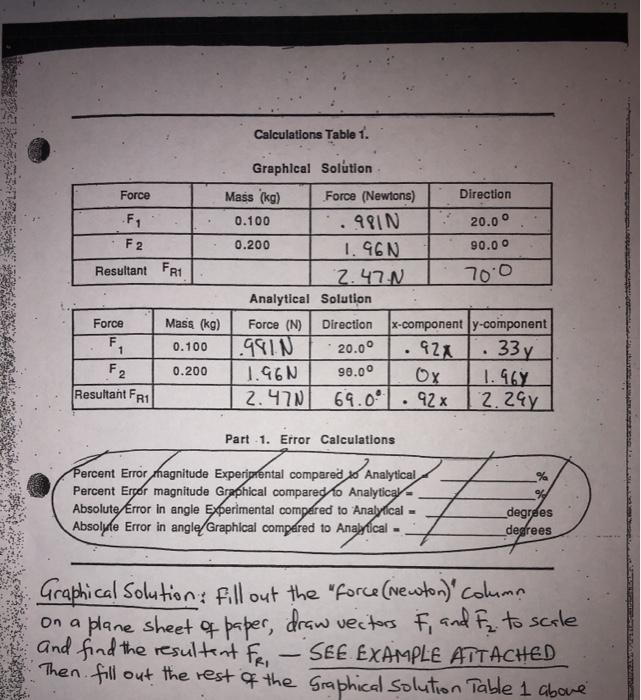 Calculations Table 1.
Graphical Solution
Force Mass (kg) Force (Newtons) Direction
F1 0.100 .981N 20.0°
F2 0.200 1.96N 90.0°
Resultant FR1 2.47N 70.0
Analytical Solution
Force Mass (kg) Force (N) Direction x-component y-component
F1 0.100 .981N 20.0° .92x .33y
F2 0.200 1.96N 90.0° 0x 1.96y
Resultant FR1 2.47N 69.0° .92x 2.29y
Part 1. Error Calculations
Percent Error magnitude Experimental compared to Analytical = %
Percent Error magnitude Graphical compared to Analytical = %
Absolute Error in angle Experimental compared to Analytical = degrees
Absolute Error in angle Graphical compared to Analytical = degrees
Graphical Solution: Fill out the "force (Newton)" column
on a plane sheet of paper, draw vectors F1 and F2 to scale
and find the resultant FR1 — SEE EXAMPLE ATTACHED
Then fill out the rest of the Graphical Solution Table 1 above